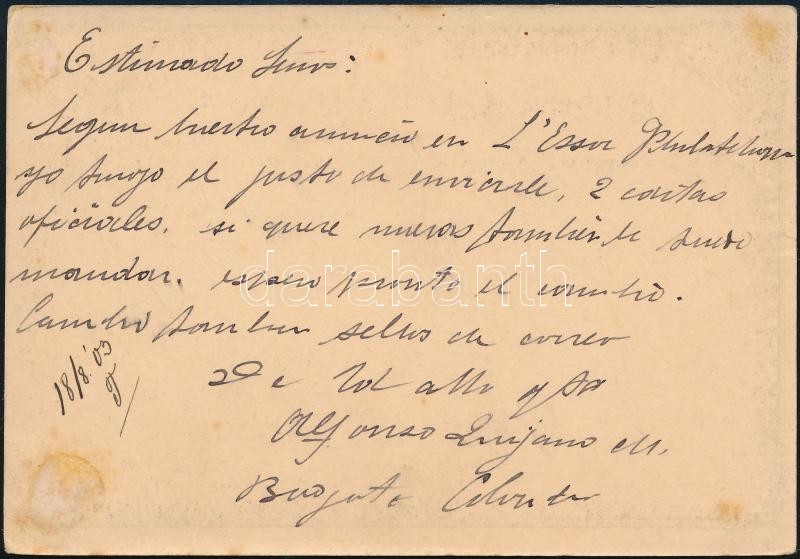 Estimado Señor:
Segun vuestro anuncio en L'Essor Philatelique
yo tengo el gusto de enviarle, 2 cartas
oficiales. si quere nuevas tambien le puedo
mandar. espero pronto el cambio.
Cambio tambien sellos de correo
De Vd atto y SS
Alfonso Quijano M.
Bogota Colombia
18/8.'03
darabanth